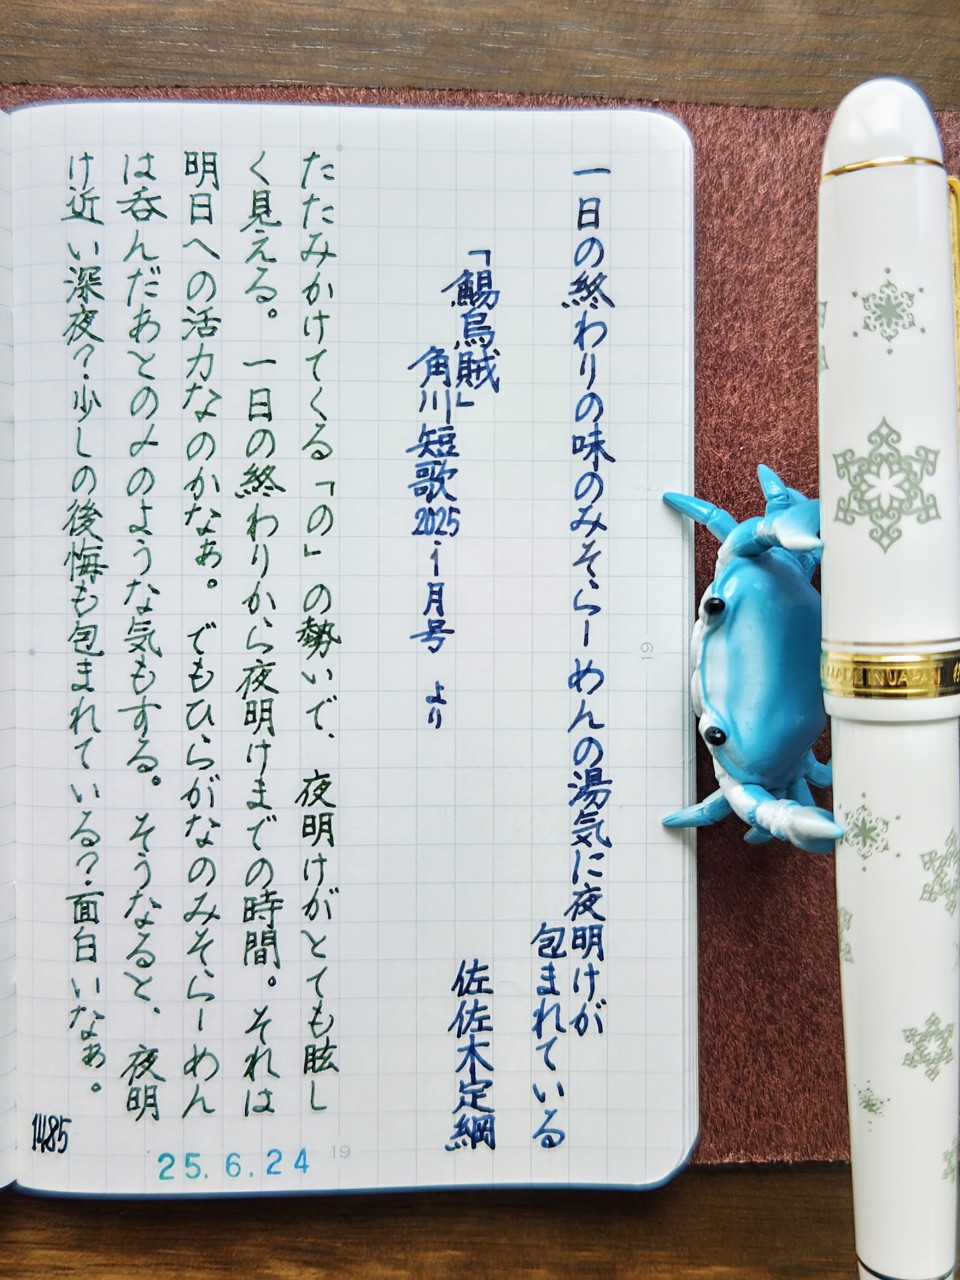 一日の終わりの味のみそらーめんの湯気に夜明けが
包まれている
「鯣烏賊」
佐佐木定綱
角川短歌2025.1月号 より
たたみかけてくる「の」の勢いで、夜明けがとても眩し
く見える。一日の終わりから夜明けまでの時間。それは
明日への活力なのかなぁ。でもひらがなのみそらーめん
は呑んだあとの〆のような気もする。そうなると、夜明
け近い深夜？少しの後悔も包まれている？面白いなぁ。
1485
25.6.24
19
19
MADE IN JAPAN